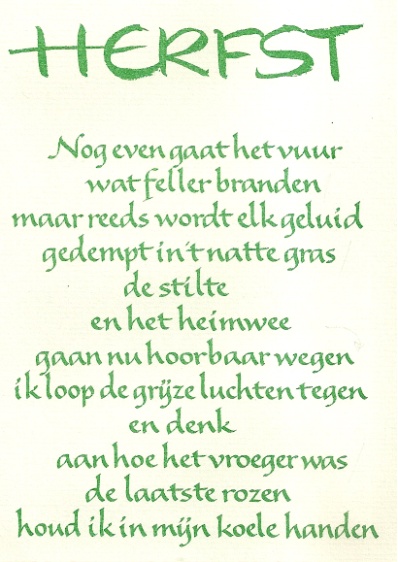 HERFST
Nog even gaat het vuur
wat feller branden
maar reeds wordt elk geluid
gedempt in 't natte gras
de stilte
en het heimwee
gaan nu hoorbaar wegen
ik loop de grijze luchten tegen
en denk
aan hoe het vroeger was
de laatste rozen
houd ik in mijn koele handen